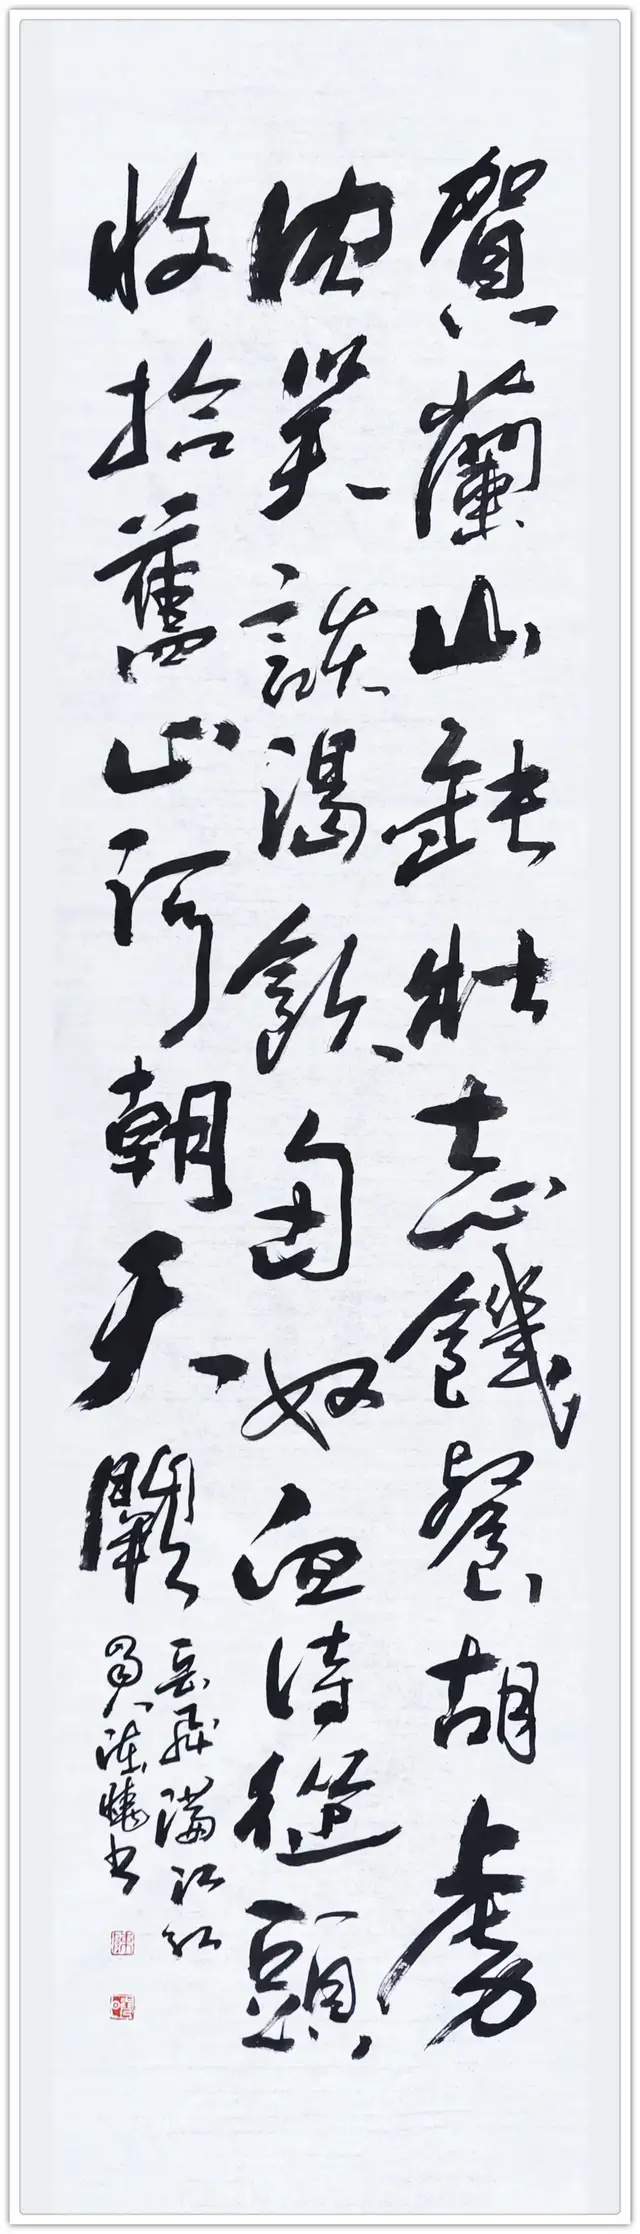 賀蘭山缺壯志饑餐胡虜
肉笑談渴飲匈奴血待從頭
收拾舊山河朝天闕
岳飛滿江紅
書